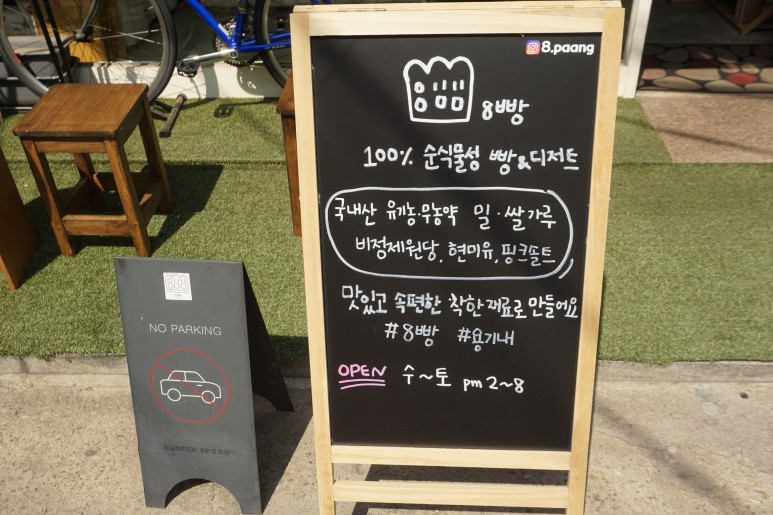 8.paang
8빵
100% 순식물성 빵&디저트
국내산 유기농·무농약 밀·쌀가루
비정제원당, 현미유, 핑크솔트
맛있고 속편한 착한재료로 만들어요
#8빵 #용기내
OPEN 수~토 pm 2~8
NO PARKING